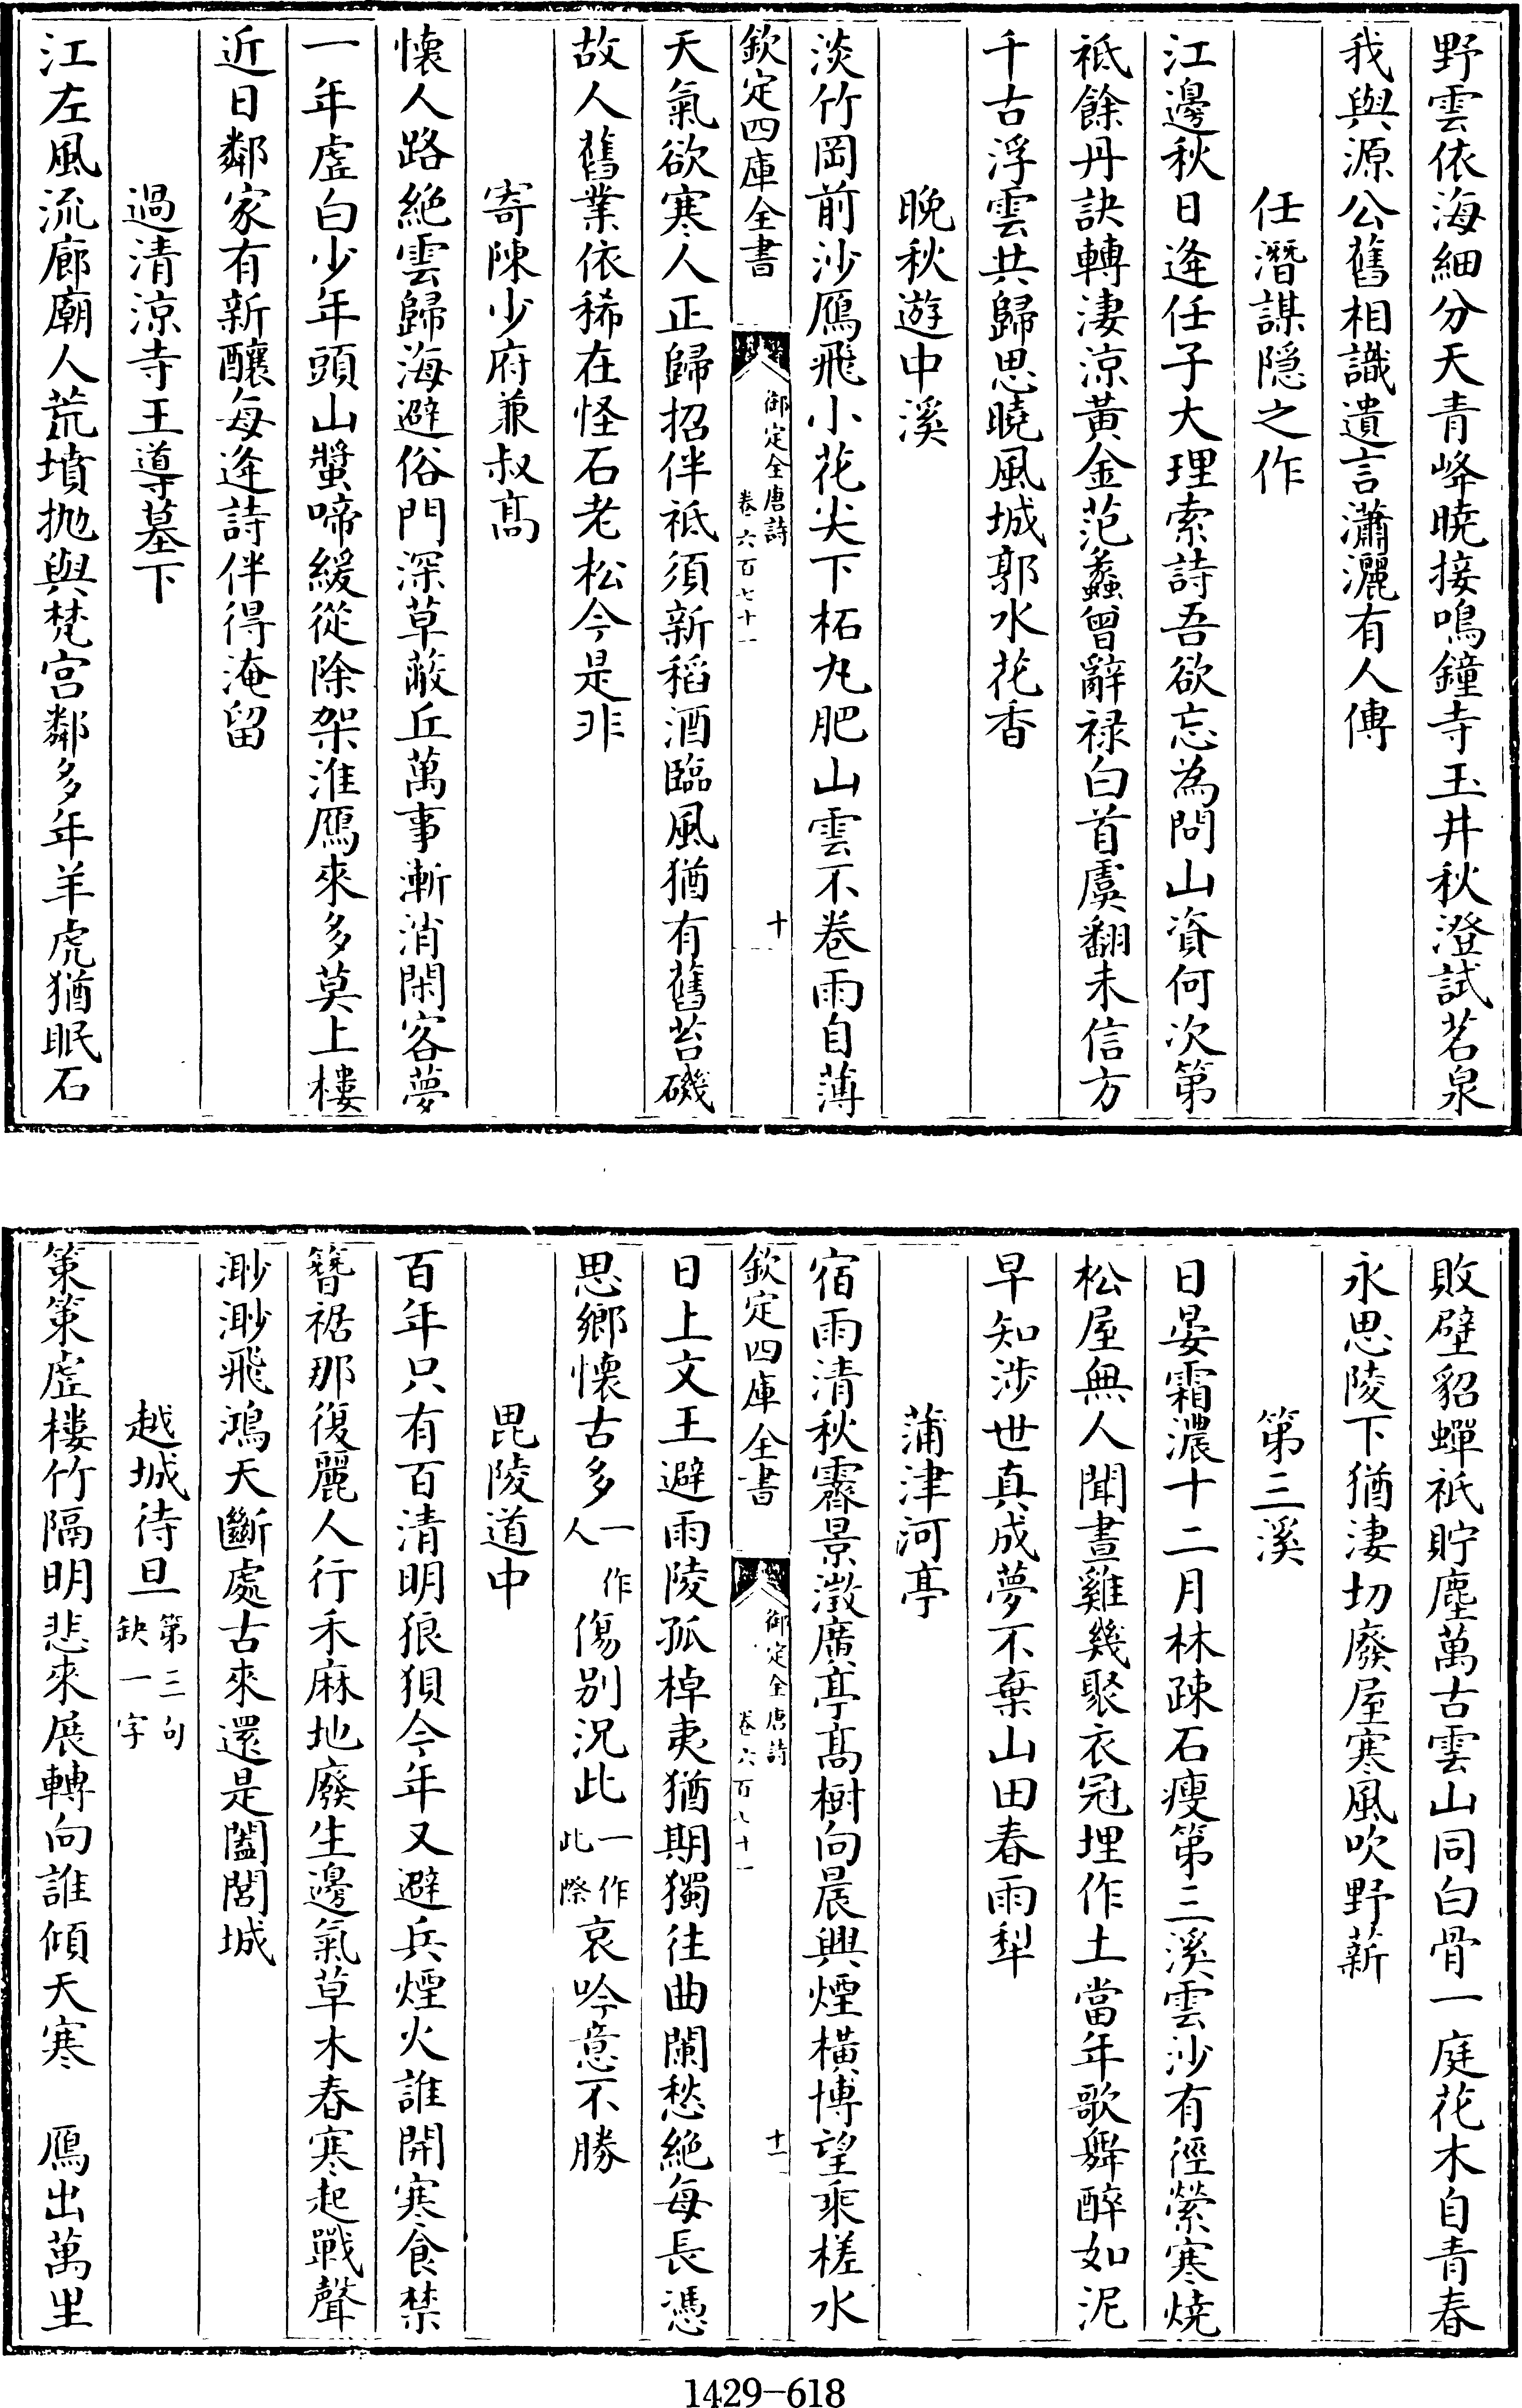 野雲依海細分天青峰曉接鳴鐘寺玉井秋澄試茗泉
我與源公舊相識遺言瀟灑有人傳
任潛謀隱之作
江邊秋日逢任子大理索詩吾欲忘為問山資何次第
祗餘丹訣轉淒涼黃金范蠡曾辭祿白首虞翻未信方
千古浮雲共歸思曉風城郭水花香
晚秋遊中溪
淡竹岡前沙鴈飛小花尖下柘丸肥山雲不卷雨自薄
欽定四庫全書
御定全唐詩
卷六百七十一
十
天氣欲寒人正歸招伴祗須新稻酒臨風猶有舊苔磯
故人舊業依稀在怪石老松今是非
寄陳少府兼叔髙
懷人路絕雲歸海避俗門深草蔽丘萬事漸消閑客夢
一年虛白少年頭山螿啼緩從除架淮鴈來多莫上樓
近日鄰家有新釀每逢詩伴得淹留
過清涼寺王導墓下
江左風流廊廟人荒墳抛與梵宮鄰多年羊虎猶眠石
敗壁貂蟬祗貯塵萬古雲山同白骨一庭花木自青春
永思陵下猶淒切廢屋寒風吹野薪
第三溪
日晏霜濃十二月林疎石瘦第三溪雲沙有徑縈寒燒
松屋無人聞晝雞幾聚衣冠埋作土當年歌舞醉如泥
早知涉世真成夢不棄山田春雨犁
蒲津河亭
宿雨清秋霽景澂廣亭髙樹向晨興煙橫博望乘槎水
欽定四庫全書
御定全唐詩
卷六百七十一
十一
日上文王避雨陵孤棹夷猶期獨往曲闌愁絕每長憑
思鄉懷古多一作人傷別況此一作此際哀吟意不勝
毘陵道中
百年只有百清明狼狽今年又避兵煙火誰開寒食禁
簪裾那復麗人行禾麻地廢生邊氣草木春寒起戰聲
渺渺飛鴻天斷處古來還是闔閭城
越城待旦第三句缺一字
策策虛樓竹隔明悲來展轉向誰傾天寒　鴈出萬里
1429-618